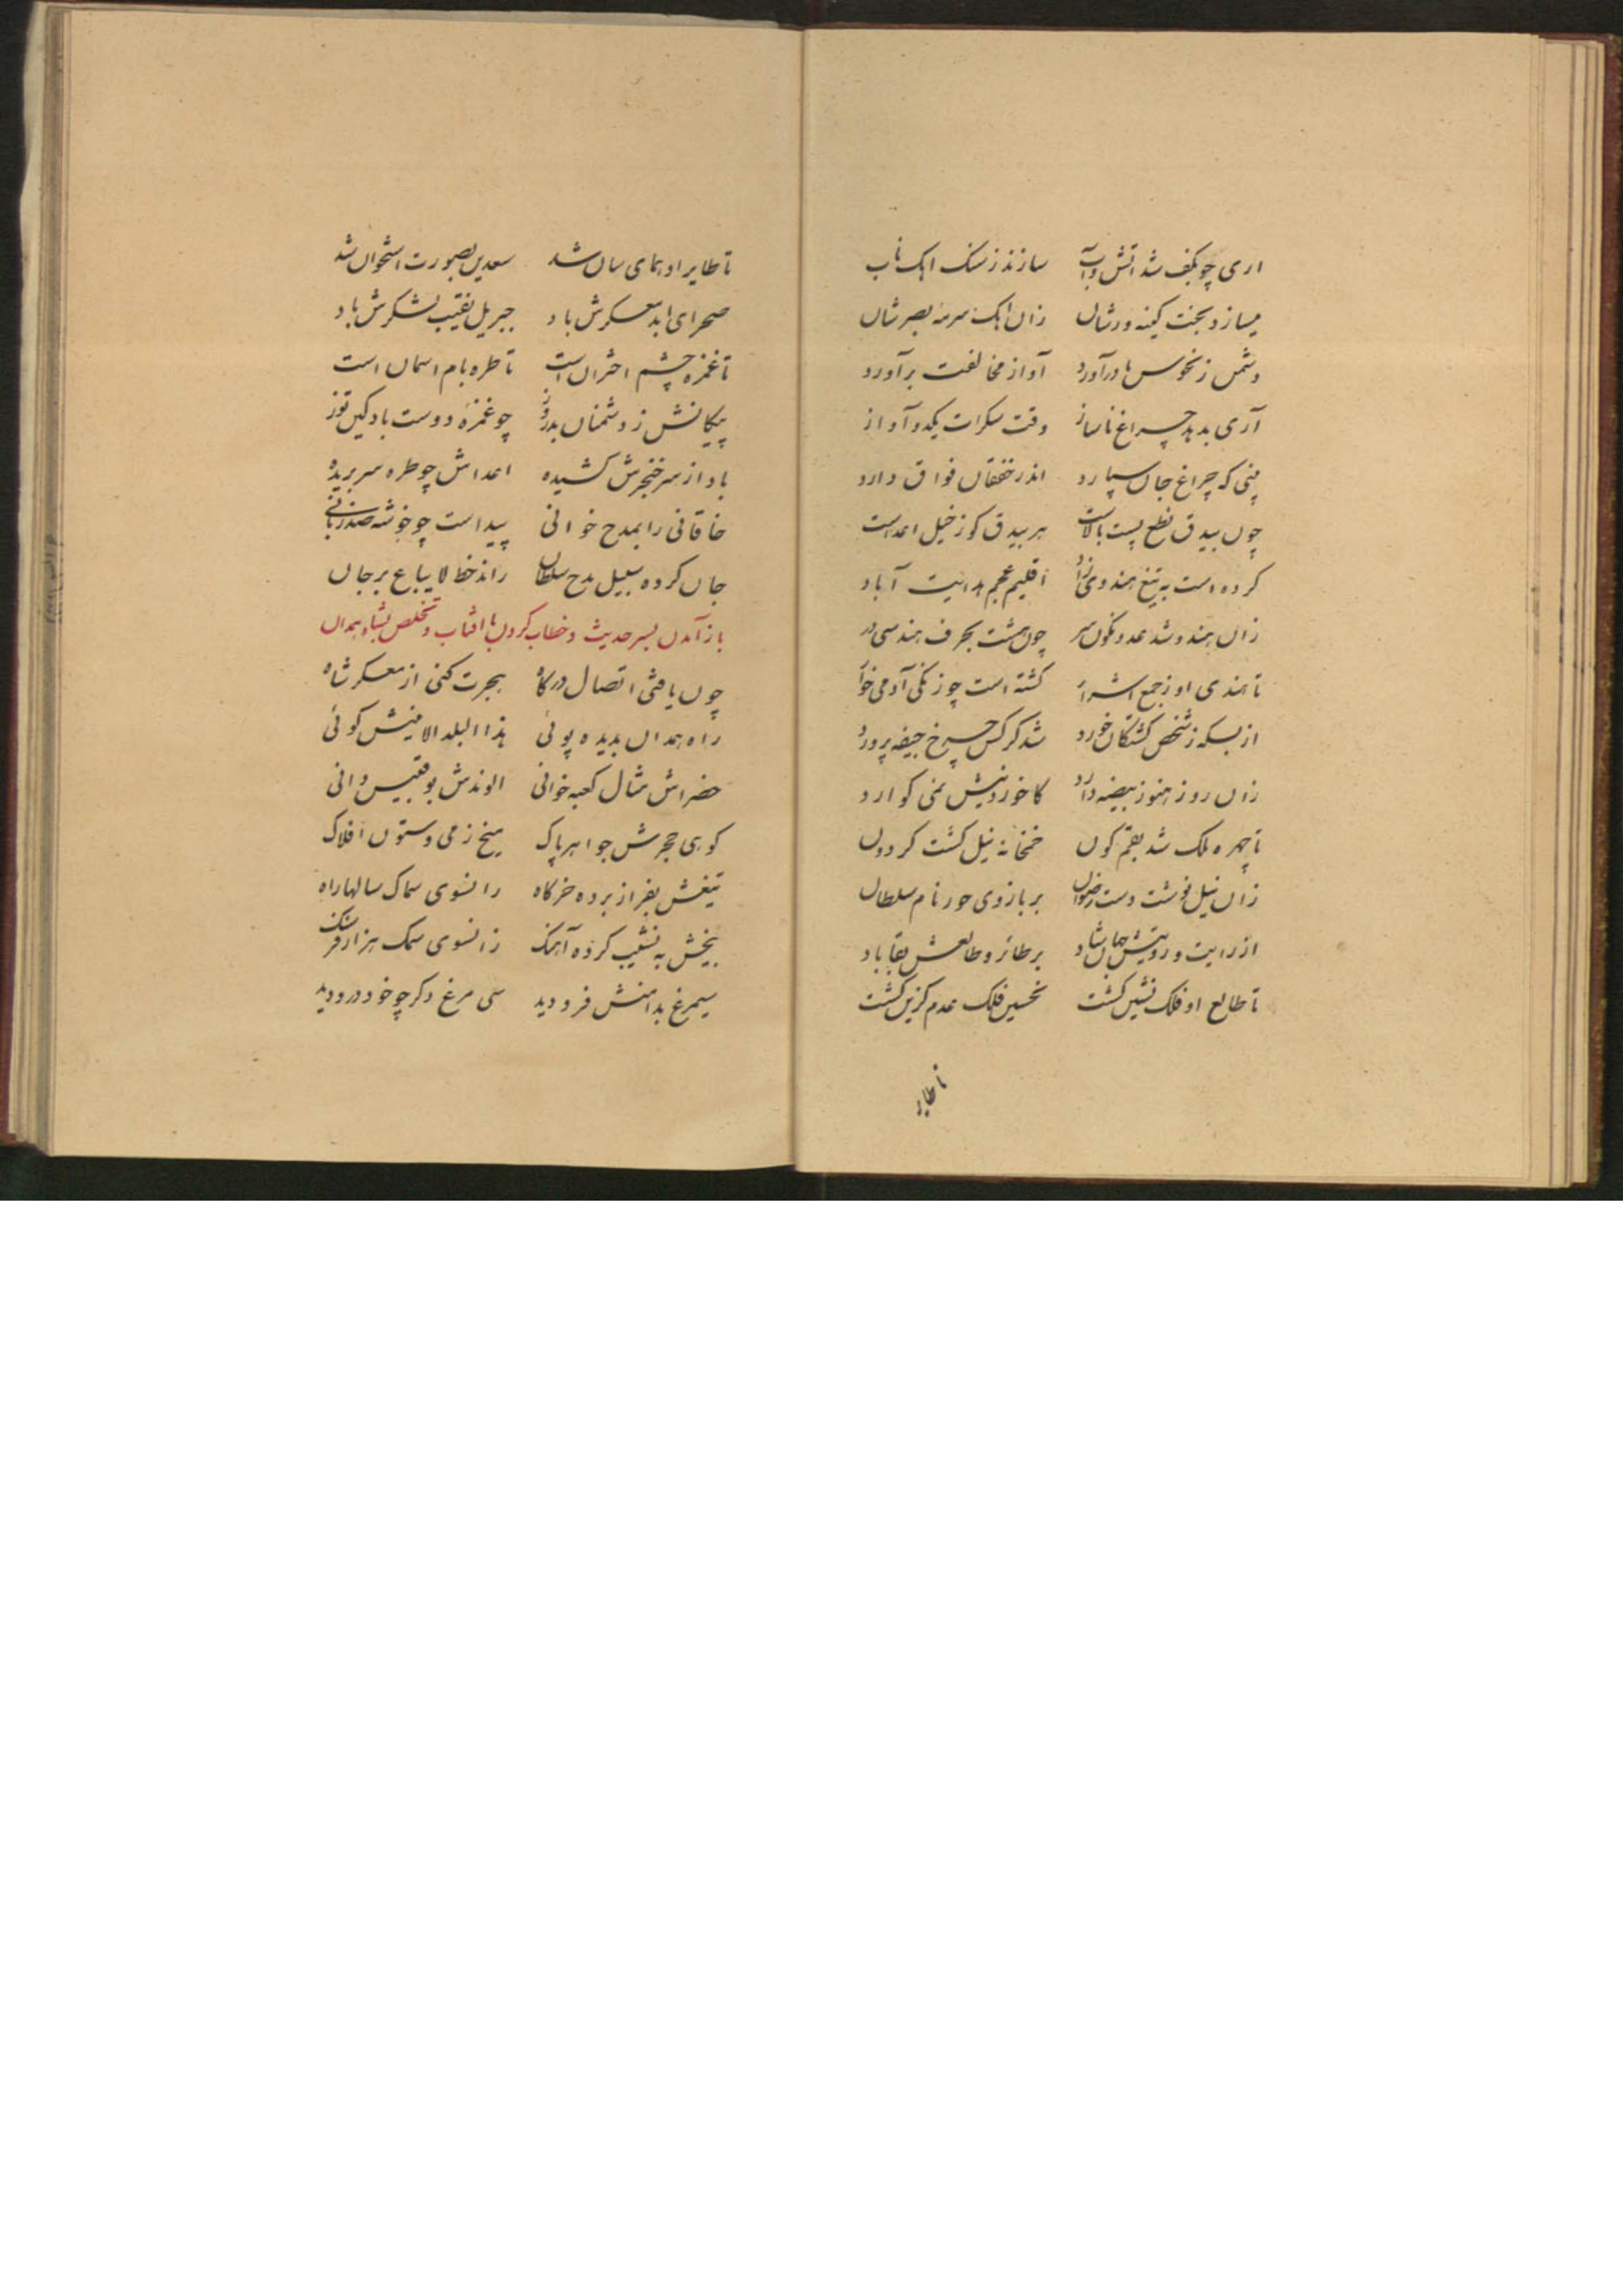 اری چو بکف شد آتش و آب سازند ز سنک اهک ناب
میسازد بخت کینه ورشان زان اهک سرمهٔ بصرشان
دشمن ز نحوس بادرآورد آواز مخالفت برآورد
آری بدهد چراغ ناساز وقت سکرات یکدو آواز
بینی که چراغ جان سپارد اندر خفقان فواق دارد
چون بیدق نطع پست بالاست هر بیدق کو ز خیل اعداست
کرده است به تیغ هندوی زاد اقلیم عجم هدایت آباد
زان هندو شد عدو نکون سر چون هشت بحرف هندسی در
تا هندی او ز جمع اشرار کشته است چو زنکی آدمی خوار
از بسکه ز شخص کشتکان خورد شد کرکس چرخ جیفه پرورد
زان روز هنوز بیضه دارد کا خوردنیش نمی کوارد
تا چهره ملک شد بقم کون خمخانه نیل کشت کردون
زان نیل نوشت دست رضوان بر بازوی حور نام سلطان
از رایت و رویتش جهان شاد بر طایر و طالعش بقا باد
تا طالع او فلک نشین کشت نحسین فلک عدم کزین کشت
تا طایر
تا طایر او همای سان شد سعدین بصورت استخوان شد
صحرای ابد معسکرش باد جبریل نقیب لشکرش باد
تا غمزه چشم اختران است تا طره بام اسمان است
پیکانش ز دشمنان بدروز چو غمزهٔ دوست باد کین توز
باد از سر خنجرش کشیده اعداش چو طره سر بریده
خاقانی را بمدح خوانی پیداست چو خوشه صد زبانی
جان کرده سبیل مدح سلطان راند خط لا یباع بر جان
باز آمدن بسر حدیث و خطاب کردن با افتاب و تخلص بشاه همدان
چون یافتی اتصال درکاه هجرت کنی از معسکر شاه
راه همدان بدیده پوئی هذا البلد الامینش کوئی
خضراش مثال کعبه خوانی الوندش بوقبیس دانی
کوهی حجرش جواهر پاک میخ زمی و ستون افلاک
تیغش بفراز برده خرکاه زانسوی سماک سالها راه
بیخش به نشیب کرده آهنک زانسوی سمک هزار فرسنک
سیمرغ بدامنش فرو دید سی مرغ دکر چو خود درو دید